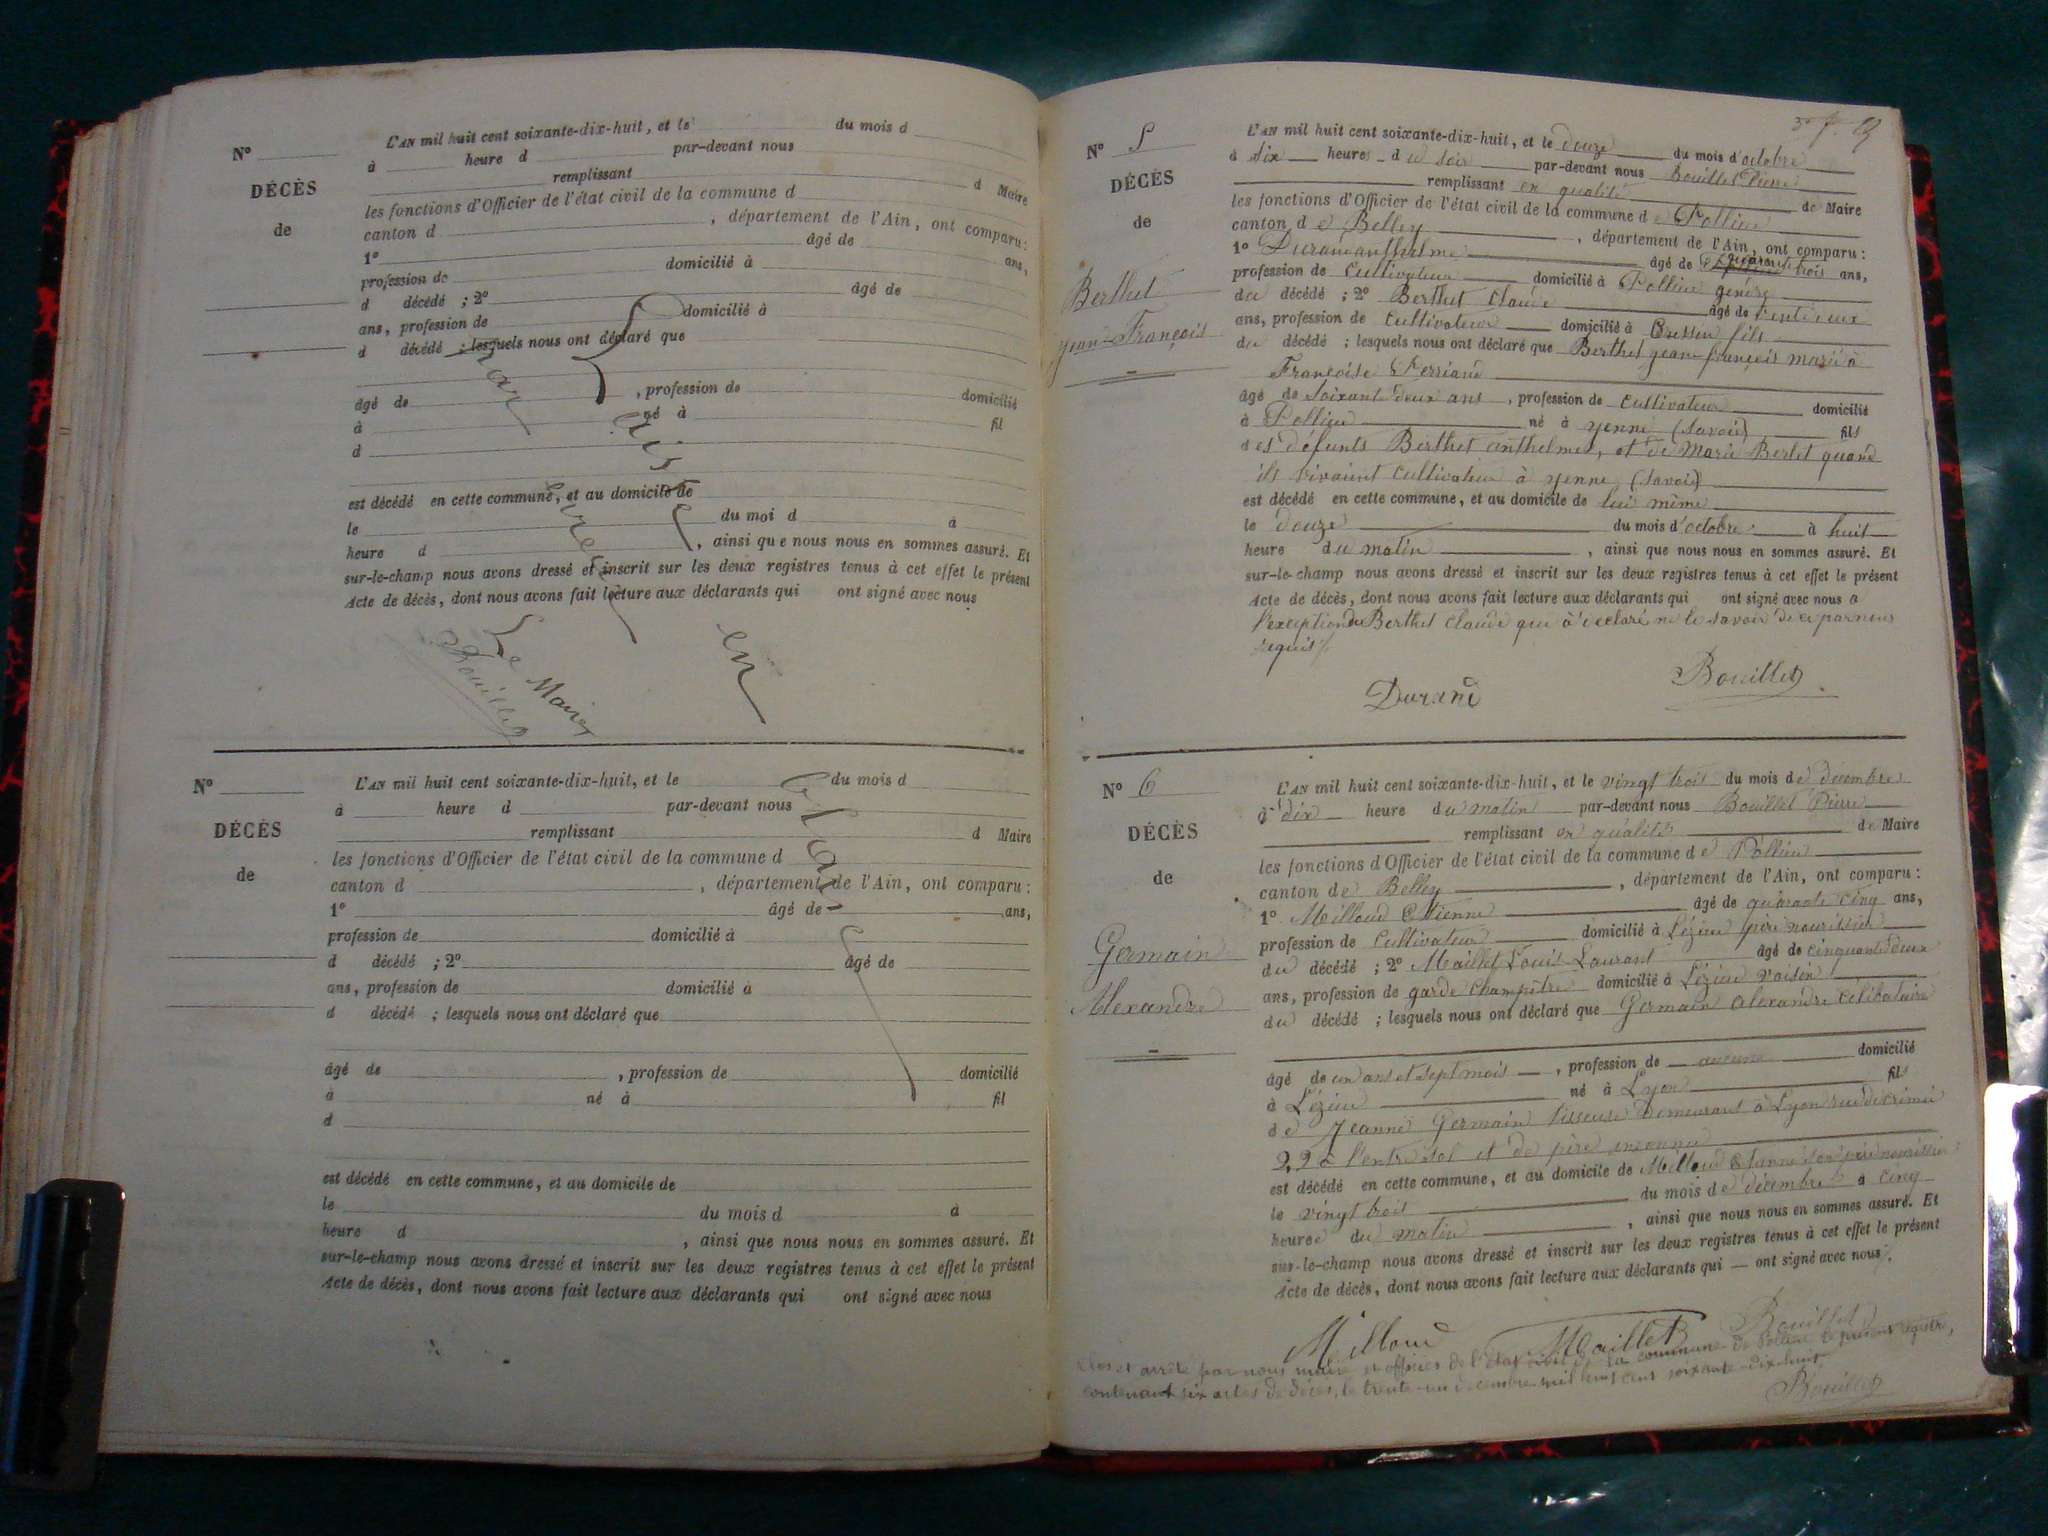 N°
DÉCÈS
de
L'AN mil huit cent soixante-dix-huit, et le du mois d
à heure d par-devant nous
remplissant d Maire
les fonctions d'Officier de l'état civil de la commune d
canton d , département de l'Ain, ont comparu :
1° âgé de ans,
profession de domicilié à
d décédé ; 2° âgé de
ans, profession de domicilié à
d décédé ; lesquels nous ont déclaré que
âgé de , profession de domicilié
à né à fil
d
est décédé en cette commune, et au domicile de
le du moi d à
heure d , ainsi que nous nous en sommes assuré. Et
sur-le-champ nous avons dressé et inscrit sur les deux registres tenus à cet effet le présent
Acte de décès, dont nous avons fait lecture aux déclarants qui ont signé avec nous
Le Maire
Bouillet
N°
DÉCÈS
de
L'AN mil huit cent soixante-dix-huit, et le du mois d
à heure d par-devant nous
remplissant d Maire
les fonctions d'Officier de l'état civil de la commune d
canton d , département de l'Ain, ont comparu :
1° âgé de ans,
profession de domicilié à
d décédé ; 2° âgé de
ans, profession de domicilié à
d décédé ; lesquels nous ont déclaré que
âgé de , profession de domicilié
à né à fil
d
est décédé en cette commune, et au domicile de
le du mois d à
heure d , ainsi que nous nous en sommes assuré. Et
sur-le-champ nous avons dressé et inscrit sur les deux registres tenus à cet effet le présent
Acte de décès, dont nous avons fait lecture aux déclarants qui ont signé avec nous
N° 5
DÉCÈS
de
Berthet
jean-François
L'AN mil huit cent soixante-dix-huit, et le douze du mois d'octobre
à six heures du soir par-devant nous Bouillet Pierre
remplissant en qualité de Maire
les fonctions d'Officier de l'état civil de la commune de Pollieu
canton de Belley , département de l'Ain, ont comparu :
1° Durand anthelme âgé de quarante trois ans,
profession de Cultivateur domicilié à Pollieu gendre
du décédé ; 2° Berthet Claude âgé de
ans, profession de Cultivateur domicilié à Cressin fils
du décédé ; lesquels nous ont déclaré que Berthet jean-françois marié à
Françoise Perriand
âgé de soixante deux ans , profession de cultivateur domicilié
à Pollieu né à yenne (Savoie) fils
des défunts Berthet anthelme, et de Marie Berlet quand
ils vivaient cultivateur à yenne (Savoie)
est décédé en cette commune, et au domicile de lui même
le douze du mois d'octobre à huit
heure du matin , ainsi que nous nous en sommes assuré. Et
sur-le-champ nous avons dressé et inscrit sur les deux registres tenus à cet effet le présent
Acte de décès, dont nous avons fait lecture aux déclarants qui ont signé avec nous a
l'exception de Berthet Claude qui à déclaré ne le savoir de ce par nous
requis
Durand Bouillet
N° 6
DÉCÈS
de
Germain
Alexandre
L'AN mil huit cent soixante-dix-huit, et le vingt trois du mois de décembre
à dix heure du matin par-devant nous Bouillet Pierre
remplissant en qualité de Maire
les fonctions d'Officier de l'état civil de la commune de Pollieu
canton de Belley , département de l'Ain, ont comparu :
1° Milloud Etienne âgé de quarante cinq ans,
profession de Cultivateur domicilié à Lézieu père nourissier
du décédé ; 2° Maillet Louis Laurant âgé de cinquante deux
ans, profession de garde Champêtre domicilié à Lézieu voisin
du décédé ; lesquels nous ont déclaré que Germain alexandre célibataire
âgé de un ans et sept mois , profession de aucune domicilié
à Lézieu né à Lyon fils
de Jeanne Germain lisseuse demeurant à Lyon rue de crimée
22 à l'entre sol et de père inconnu
est décédé en cette commune, et au domicile de Milloud Etienne son père nourissier
le vingt trois du mois de décembre à cinq
heures du matin , ainsi que nous nous en sommes assuré. Et
sur-le-champ nous avons dressé et inscrit sur les deux registres tenus à cet effet le présent
Acte de décès, dont nous avons fait lecture aux déclarants qui — ont signé avec nous.
Milloud Maillet Bouillet
Clos et arrêté par nous maire et officier de l'état civil de la commune de Pollieu le présent registre,
contenant six actes de décès, le trente-un décembre mil huit cent soixante-dix-huit.
Bouillet